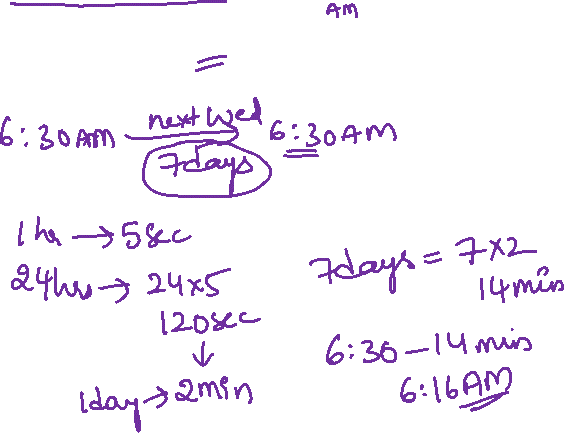 AM
next Wed
6:30AM 6:30AM
7days
1hr → 5sec
24hrs → 24×5
120sec
↓
1day → 2min
7days = 7×2
14mins
6:30 - 14 mins
6:16AM